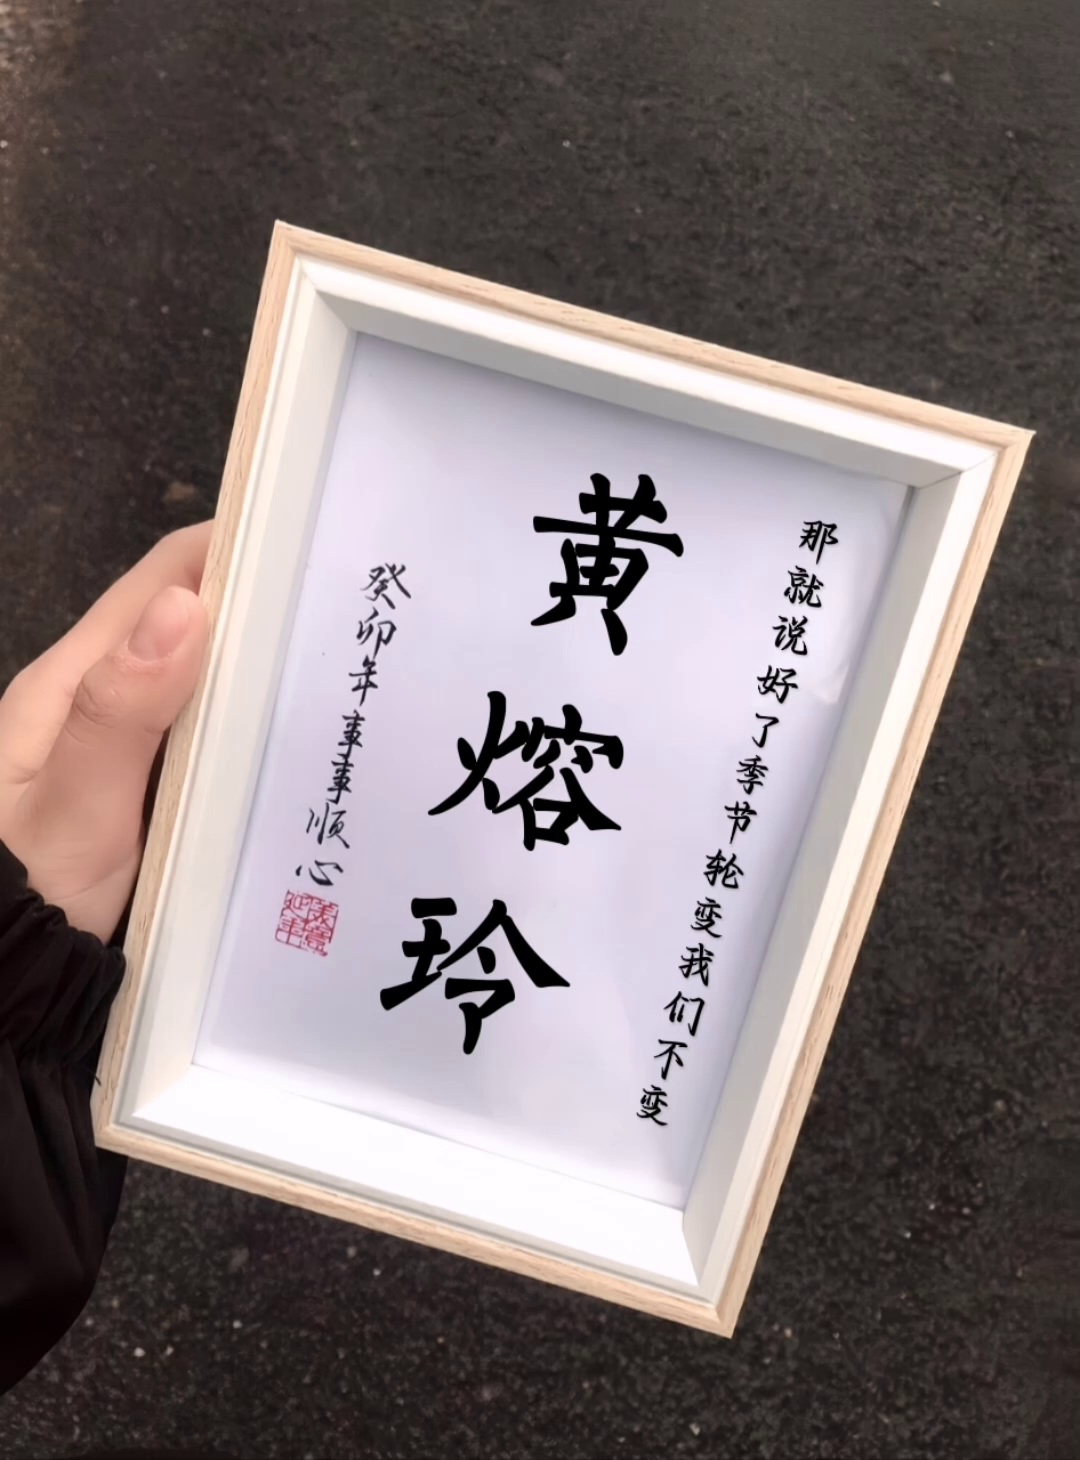 那就说好了季节轮变我们不变
黄熔玲
癸卯年事事顺心